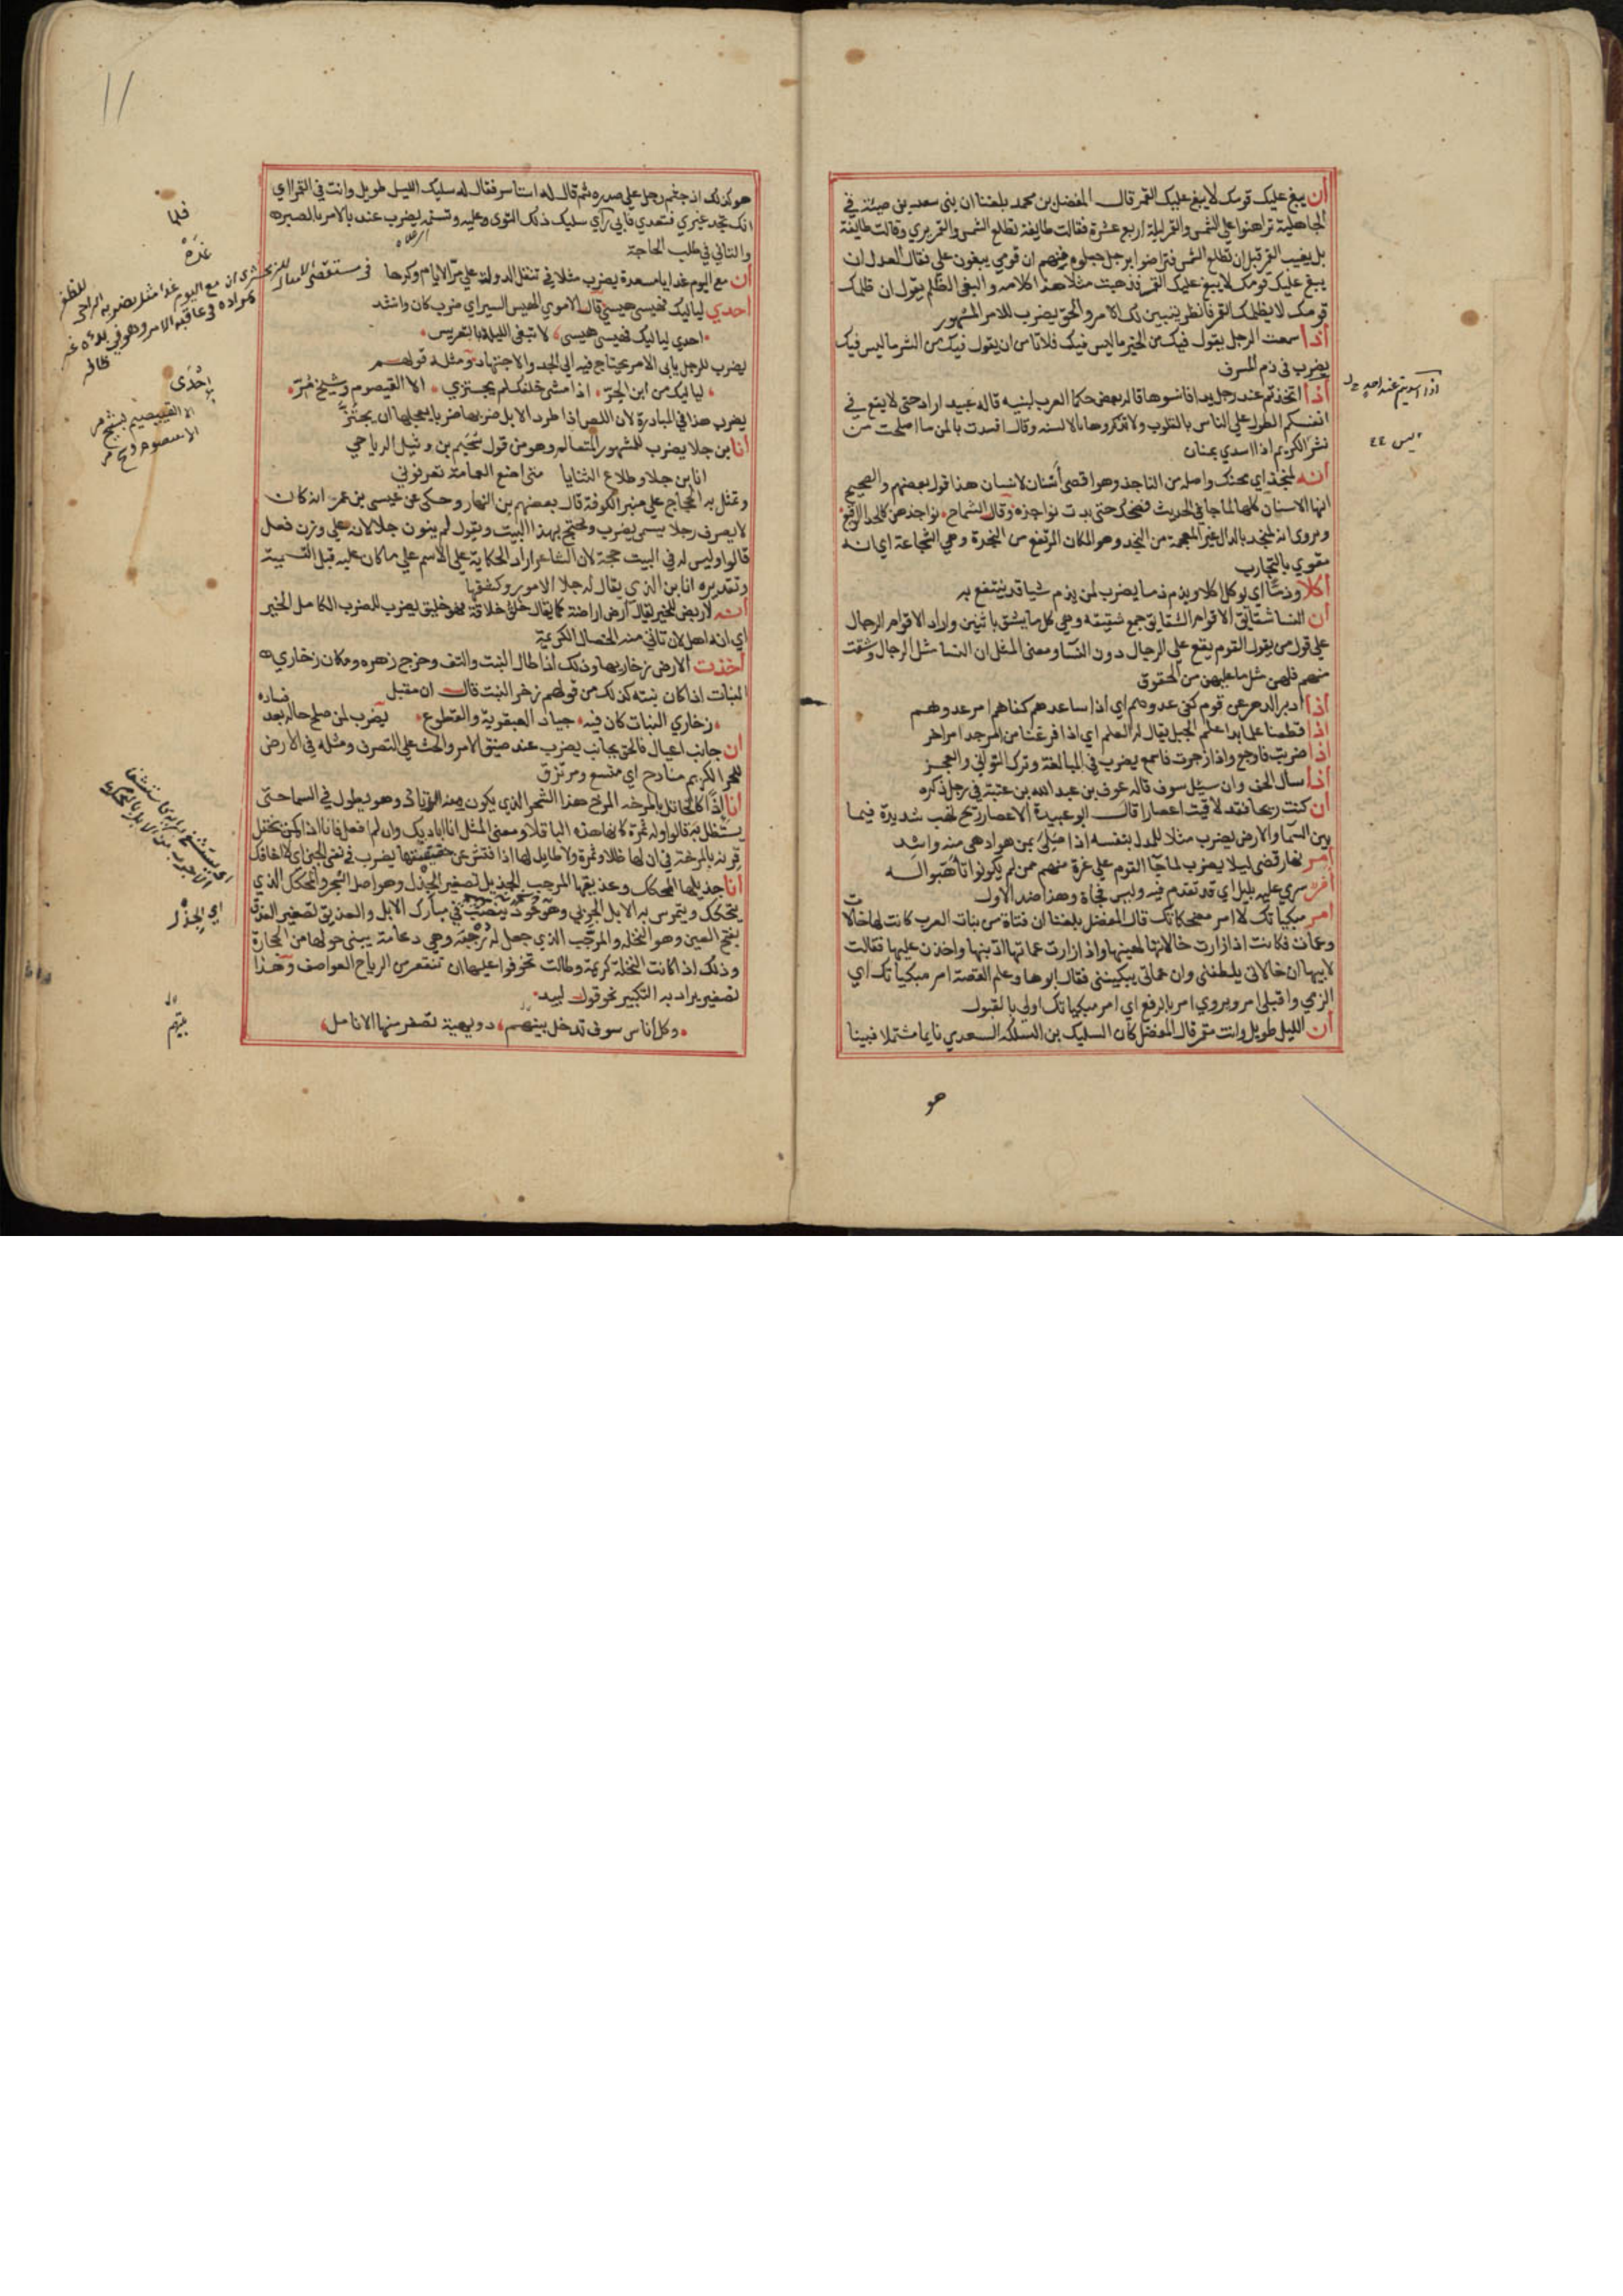 أن يبغ عليك قومك لا يبغ عليك القمر قال المفضل بن محمد بلغنا ان بني سعد بن ضبة في
الجاهلية تراهنوا على الشمس والقمر ليلة اربع عشرة فقالت طايفة تطلع الشمس والقمر يري وقالت طايفة
بل يغيب القمر قبل ان تطلع الشمس فتراضوا برجل جعلوه بينهم ان قومي يبغون علي فقال العدل ان
يبغ عليك قومك لا يبغ عليك القمر فذهبت مثلا هذا كلامه والبغي الظلم يقول ان ظلمك
قومك لا يظلمك القمر فانظر يتبين لك الامر والحق يضرب للامر المشهور
أذا سمعت الرجل يقول فيك من الخير ما ليس فيك فلا تامن ان يقول فيك من الشر ما ليس فيك
يضرب في ذم المسرف
أذا اتخذتم عند رجل يدا فانسوها قاله بعض حكما العرب لبنيه قاله عبيد اراد حتى لا يقع في
انفسكم الطول على الناس بالقلوب ولا تذكروها بالالسنه وقال افسدت بالمن ما اصلحت من
ليس الكريم اذا اسدي بمنان
أنه لمنجذ اي محنك واصله من الناجذ وهو اقصى أسنان الانسان هذا قول بعضهم والصحيح
انها الاسنان كلها لما جا في الحديث فضحك حتى بدت نواجزه وقال الشماخ نواجذهن كالحدا الوقيع
ويروي انه لمنجد بالدال غير المعجمة من النجد وهو المكان المرتفع من النجدة وهي الشجاعة اي انه
مقوي بالتجارب
أكلا وذمًّا اي يوكل اكلا ويذم ذما يضرب لمن يذم شيا قد ينتفع به
أن النسا شقايق الاقوام الشقايق جمع شقيقه وهي كل ما يشق باثنين واراد بالاقوام الرجال
علي قول من يقول القوم يقع علي الرجال دون النسا ومعني المثل ان النسا مثل الرجال وشقت
منهم فلهن مثل ما عليهن من الحقوق
أذا ادبر الدهر عن قوم كفى عدوهم اي اذا ساعدهم كفاهم امر عدوهم
اذا قطعنا علما بدا علم الجبل يقال له العلم اي اذا فرغنا من امر حدا امر اخر
أذا ضربت فاوجع واذا زجرت فاسمع يضرب في المبالغة وترك التواني والعجز
أذا سال الحف وان سيل سوف قاله عون بن عبد الله بن عتبة في رجل ذكره
أن كنت ريحا فقد لاقيت اعصارا قال ابو عبيدة الاعصار ريح تهب شديدة فيما
بين السما والارض يضرب مثلا للمدل بنفسه اذا صلي بمن هو ادهي منه واشد
أمر نهار قضي ليلا يضرب لما جا القوم علي غرة منهم ممن لم يكونوا تاهبوا له
أمر سري عليه بليل اي قد تقدم فيه وليس فجاة وهذا ضد الاول
أمر مبكياتك لا امر مضحكاتك قال المفضل بلغنا ان فتاة من بنات العرب كانت لها خالات
وعمات فكانت اذا زارت خالاتها الهينها واذا زارت عماتها ادبنها واخذن عليها فقالت
لابيها ان خالاتي يلطفنني وان عماتي يبكينني فقال ابوها وعلم القصة امر مبكياتك اي
الزمي واقبلي امر ويروي امر بالرفع اي امر مبكياتك اولي بالقبول
أن الليل طويل وانت مقمر قال المفضل كان السليك بن السلكه السعدي نايما مشتملا فبينا
هو
ليس ٤٤
١١
هو كذلك اذ جثم رجل علي صدره ثم قال له استاسر فقال له سليك الليل طويل وانت في القمر اي
انك تجد غيري فتعدي فابي راي سليك ذلك التوي عليه وتسنمه يضرب عند الامر بالصبر
والتاني في طلب الحاجة
أن مع اليوم غدا يا مسعدة يضرب مثلا في تنقل الدول على مر الايام وكرها
أحدي لياليك فهيسي هيسي قال الاموي الهيس السير اي ضرب كان وانشد
احدي لياليك فهيسي هيسي لا تنعمي الليلة بالتعريس
يضرب للرجل ياتي الامر يحتاج فيه الي الجد والاجتهاد ومثله قولهم
لياليك من ابن الحر اذا مشي خلفك لم يجتزي الا القيصوم وشيح مر
يضرب هذا في المبادرة لان اللص اذا طرد الابل ضربها ضربا يعجلها ان يجتز
أنا ابن جلا يضرب للمشهور المتعالم وهو من قول سحيم بن وثيل الرياحي
انا ابن جلا وطلاع الثنايا متى اضع العمامة تعرفوني
وتمثل به الحجاج علي منبر الكوفة قال بعضهم بن النهار وحكي عن عيسى بن عمر انه كان
لا يصرف رجلا يسمى بضرب ويحتج بهذا البيت ويقول لم ينون جلا لانه علي وزن فعل
قالوا وليس له في البيت حجة لان الشاعر اراد الحكاية علي الاسم علي ما كان عليه قبل التسمية
وتقديره انا ابن الذي يقال له جلا الامور وكشفها
أنه لاريض للخير يقال ارض اراضة كما يقال خلق خلاقة فهو خليق يضرب للضرب الكامل الخير
اي انه اهل لان تاتي منه الخصال الكريمة
أخذت الارض زخاريها وذلك اذا طال النبت والتف وخرج زهره ومكان زخاري
النبات اذا كان نبته كذلك من قولهم زخر النبت قال ابن مقبل
زخاري النبات كان فيه جياد العبقرية والقطوع يضرب لمن صلح حاله بعد فساده
أن جانب اعيال فالحق بجانب يضرب عند ضيق الامر والحث علي التصرف ومثله في الارض
للحر الكريم منادح اي متسع ومرتزق
أنا اذا كالخاتل بالمرخه المرخ هذا الشجر الذي يكون منه الزناد وهو يطول في السما حتى
يستظل به قالوا وله ثمرة كانها هذه الباقلا ومعنى المثل انا اباديك وان لم افعل فانا اذا كمن يختل
قرنه بالمرخة في ان لها ظلا وثمرة ولا طايل لها اذا فتش عن حقيقتها يضرب في نفي الجبن اي لا اخافك
أنا جذيلها المحكك وعذيقها المرجب الجذيل تصغير الجذل وهو اصل الشجر والمحكك الذي
يتحكك ويتمرس به الابل الجربي وهو عود ينصب في مبارك الابل والعذيق تصغير العذق
بفتح العين وهو النخلة والمرجب الذي جعل له رجبة وهي دعامة يبنى حولها من الحجارة
وذلك اذا كانت النخلة كريمة وطالت تخوفوا عليها ان تنقعر من الرياح العواصف وهذا
تصغير يراد به التكبير نحو قول لبيد
وكل أناس سوف تدخل بينهم دويهية تصفر منها الانامل
اي الجذل
بيتهم